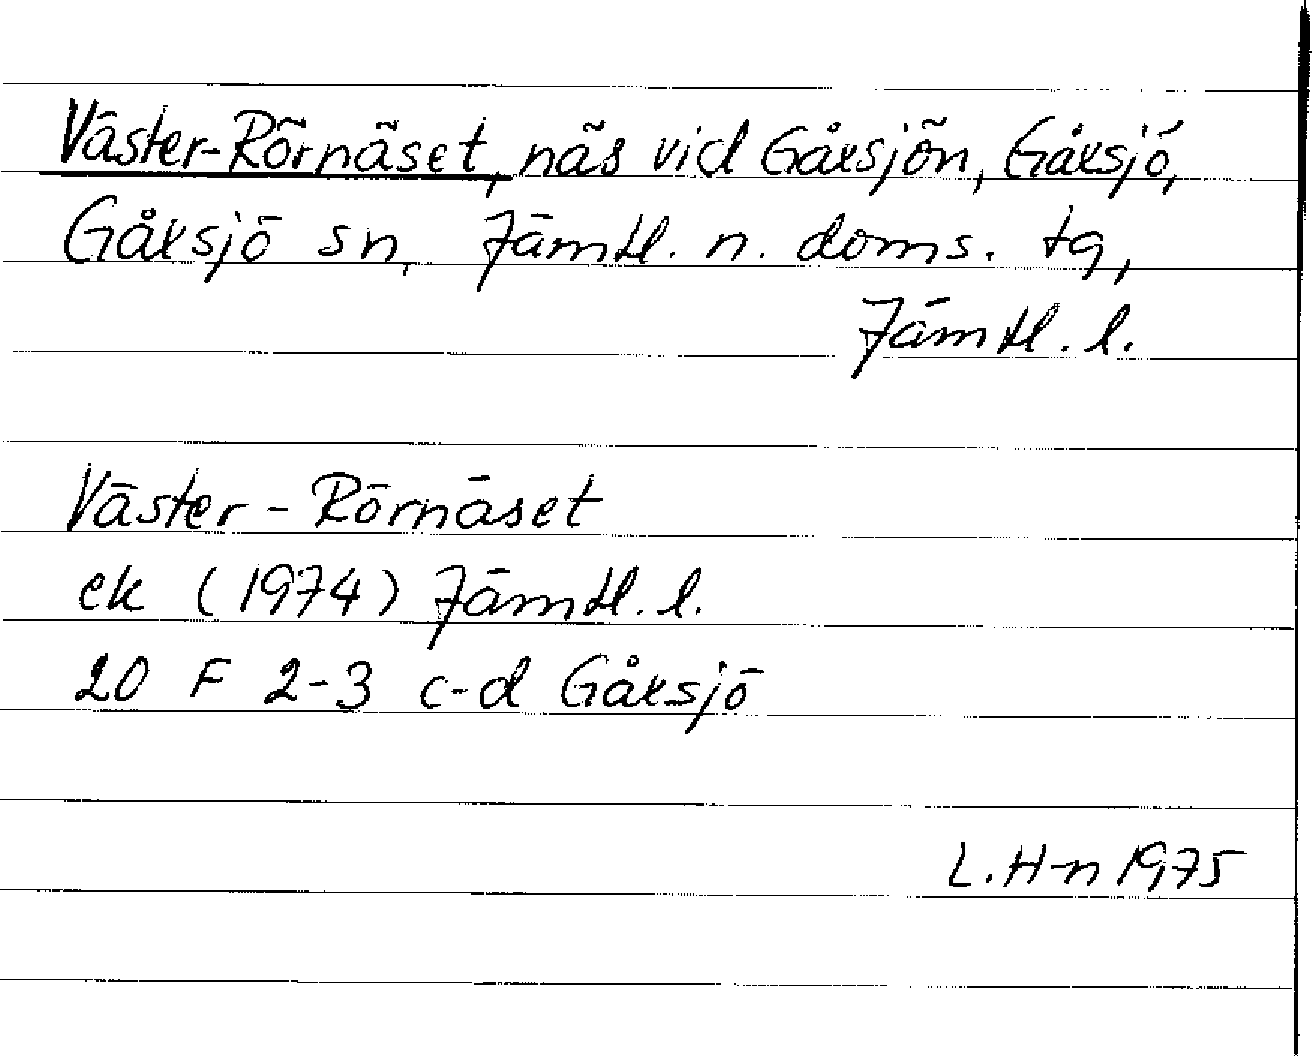 Väster-Rörnäset, näs vid Gåxsjön, Gåxsjö,
Gåxsjö sn, Jämtl. n. doms. tg,
Jämtl. l.
Väster - Rörnäset
ek (1974) Jämtl. l.
20 F 2-3 c-d Gåxsjö
L. H-n 1975